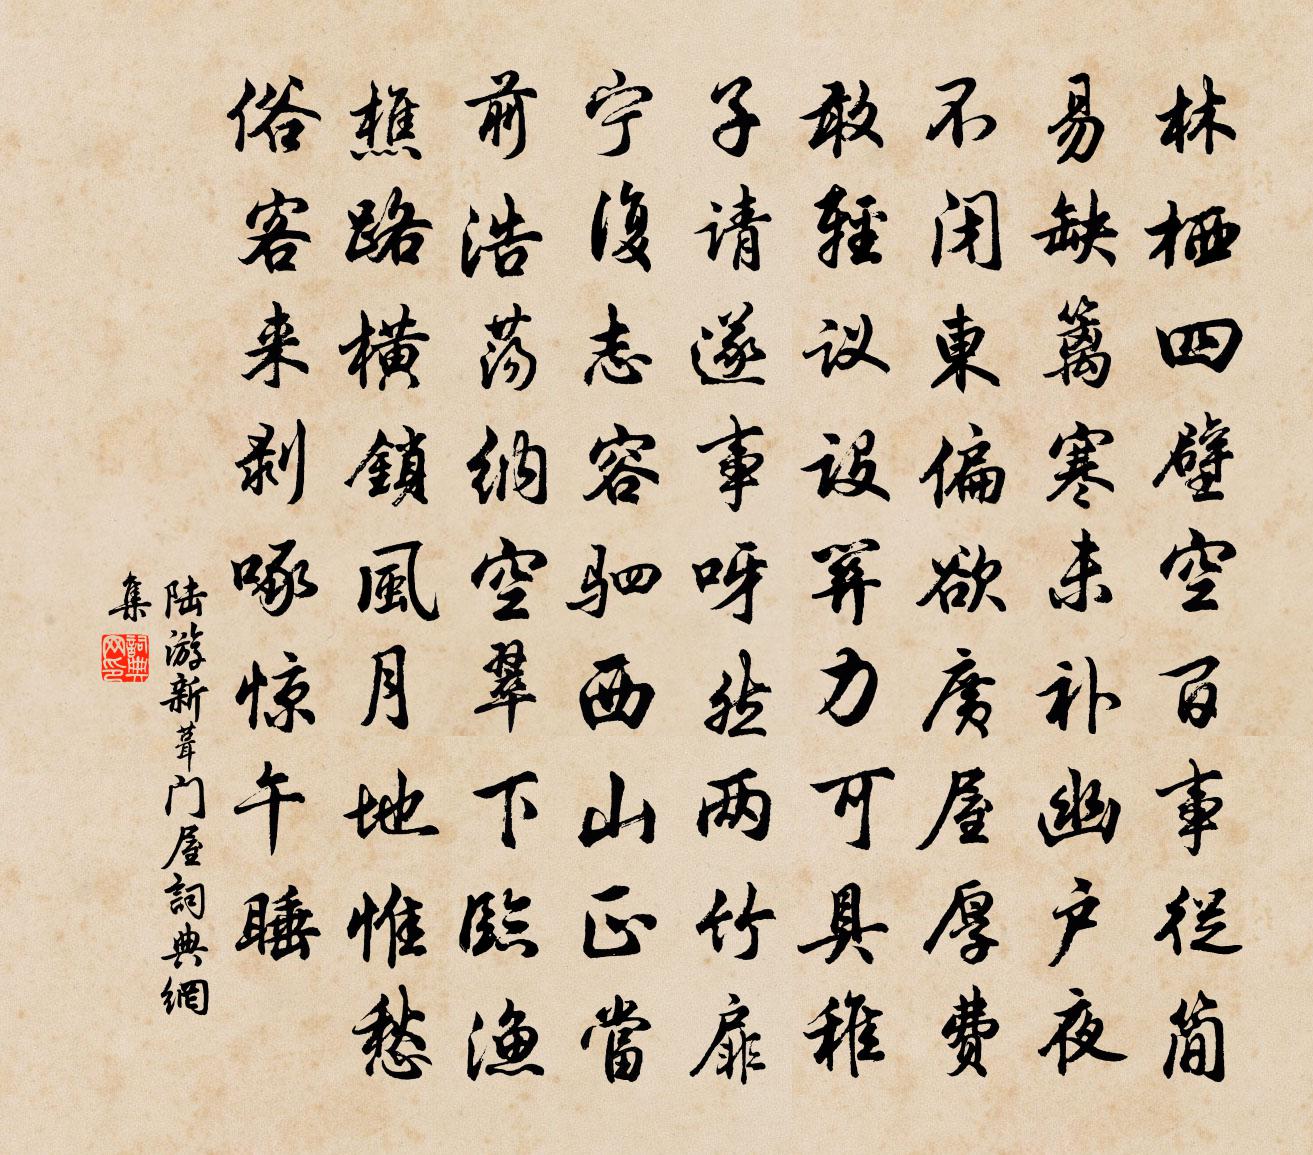 林栖四壁空百事從简
易缺籬寒未补幽户夜
不闭東偏欲廣屋厚費
敢輕议設筭力可具稚
子请遂事呀然两竹扉
宁復志容驷西山正當
前浩荡納空翠下臨漁
樵路横鎖風月地惟愁
俗客来剥啄惊午睡
陆游新葺门屋詞典網
集
詞典网印